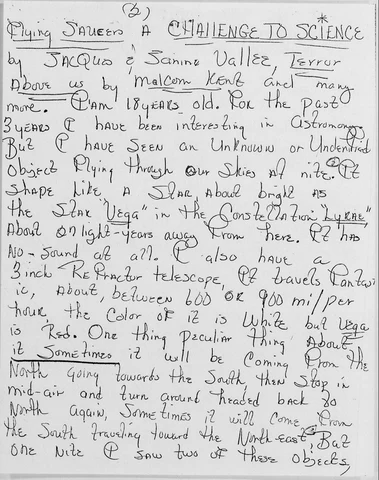 (2)
Flying Saucers A CHALLENGE TO SCIENCE*
by JACQUES & Janine Vallee, Terror
Above us by Malcom KENT and many
more. I am 18 years old. For the past
3 years I have been interesting in Astronomy.
But I have seen an Unknown or
Object Flying through our Skies at nite. It
shape like A Star About bright as
the Star "Vega" in the Constellation "Lyrae"
About light-years away From here. It has
No-sound at all. I also have a
3 inch Refractor telescope, It travels Fantas
ic, About, between 600 OR 900 mi/per
hour, the Color of it is White but Vega
is Red. One thing Peculiar thing About,
it Sometimes it will be Coming From the
North going towards the South, then Stop in
mid-air and turn around headed back to
North again, Sometimes it will come From
the South traveling toward the North-east, But
one Nite I saw two of these objects,